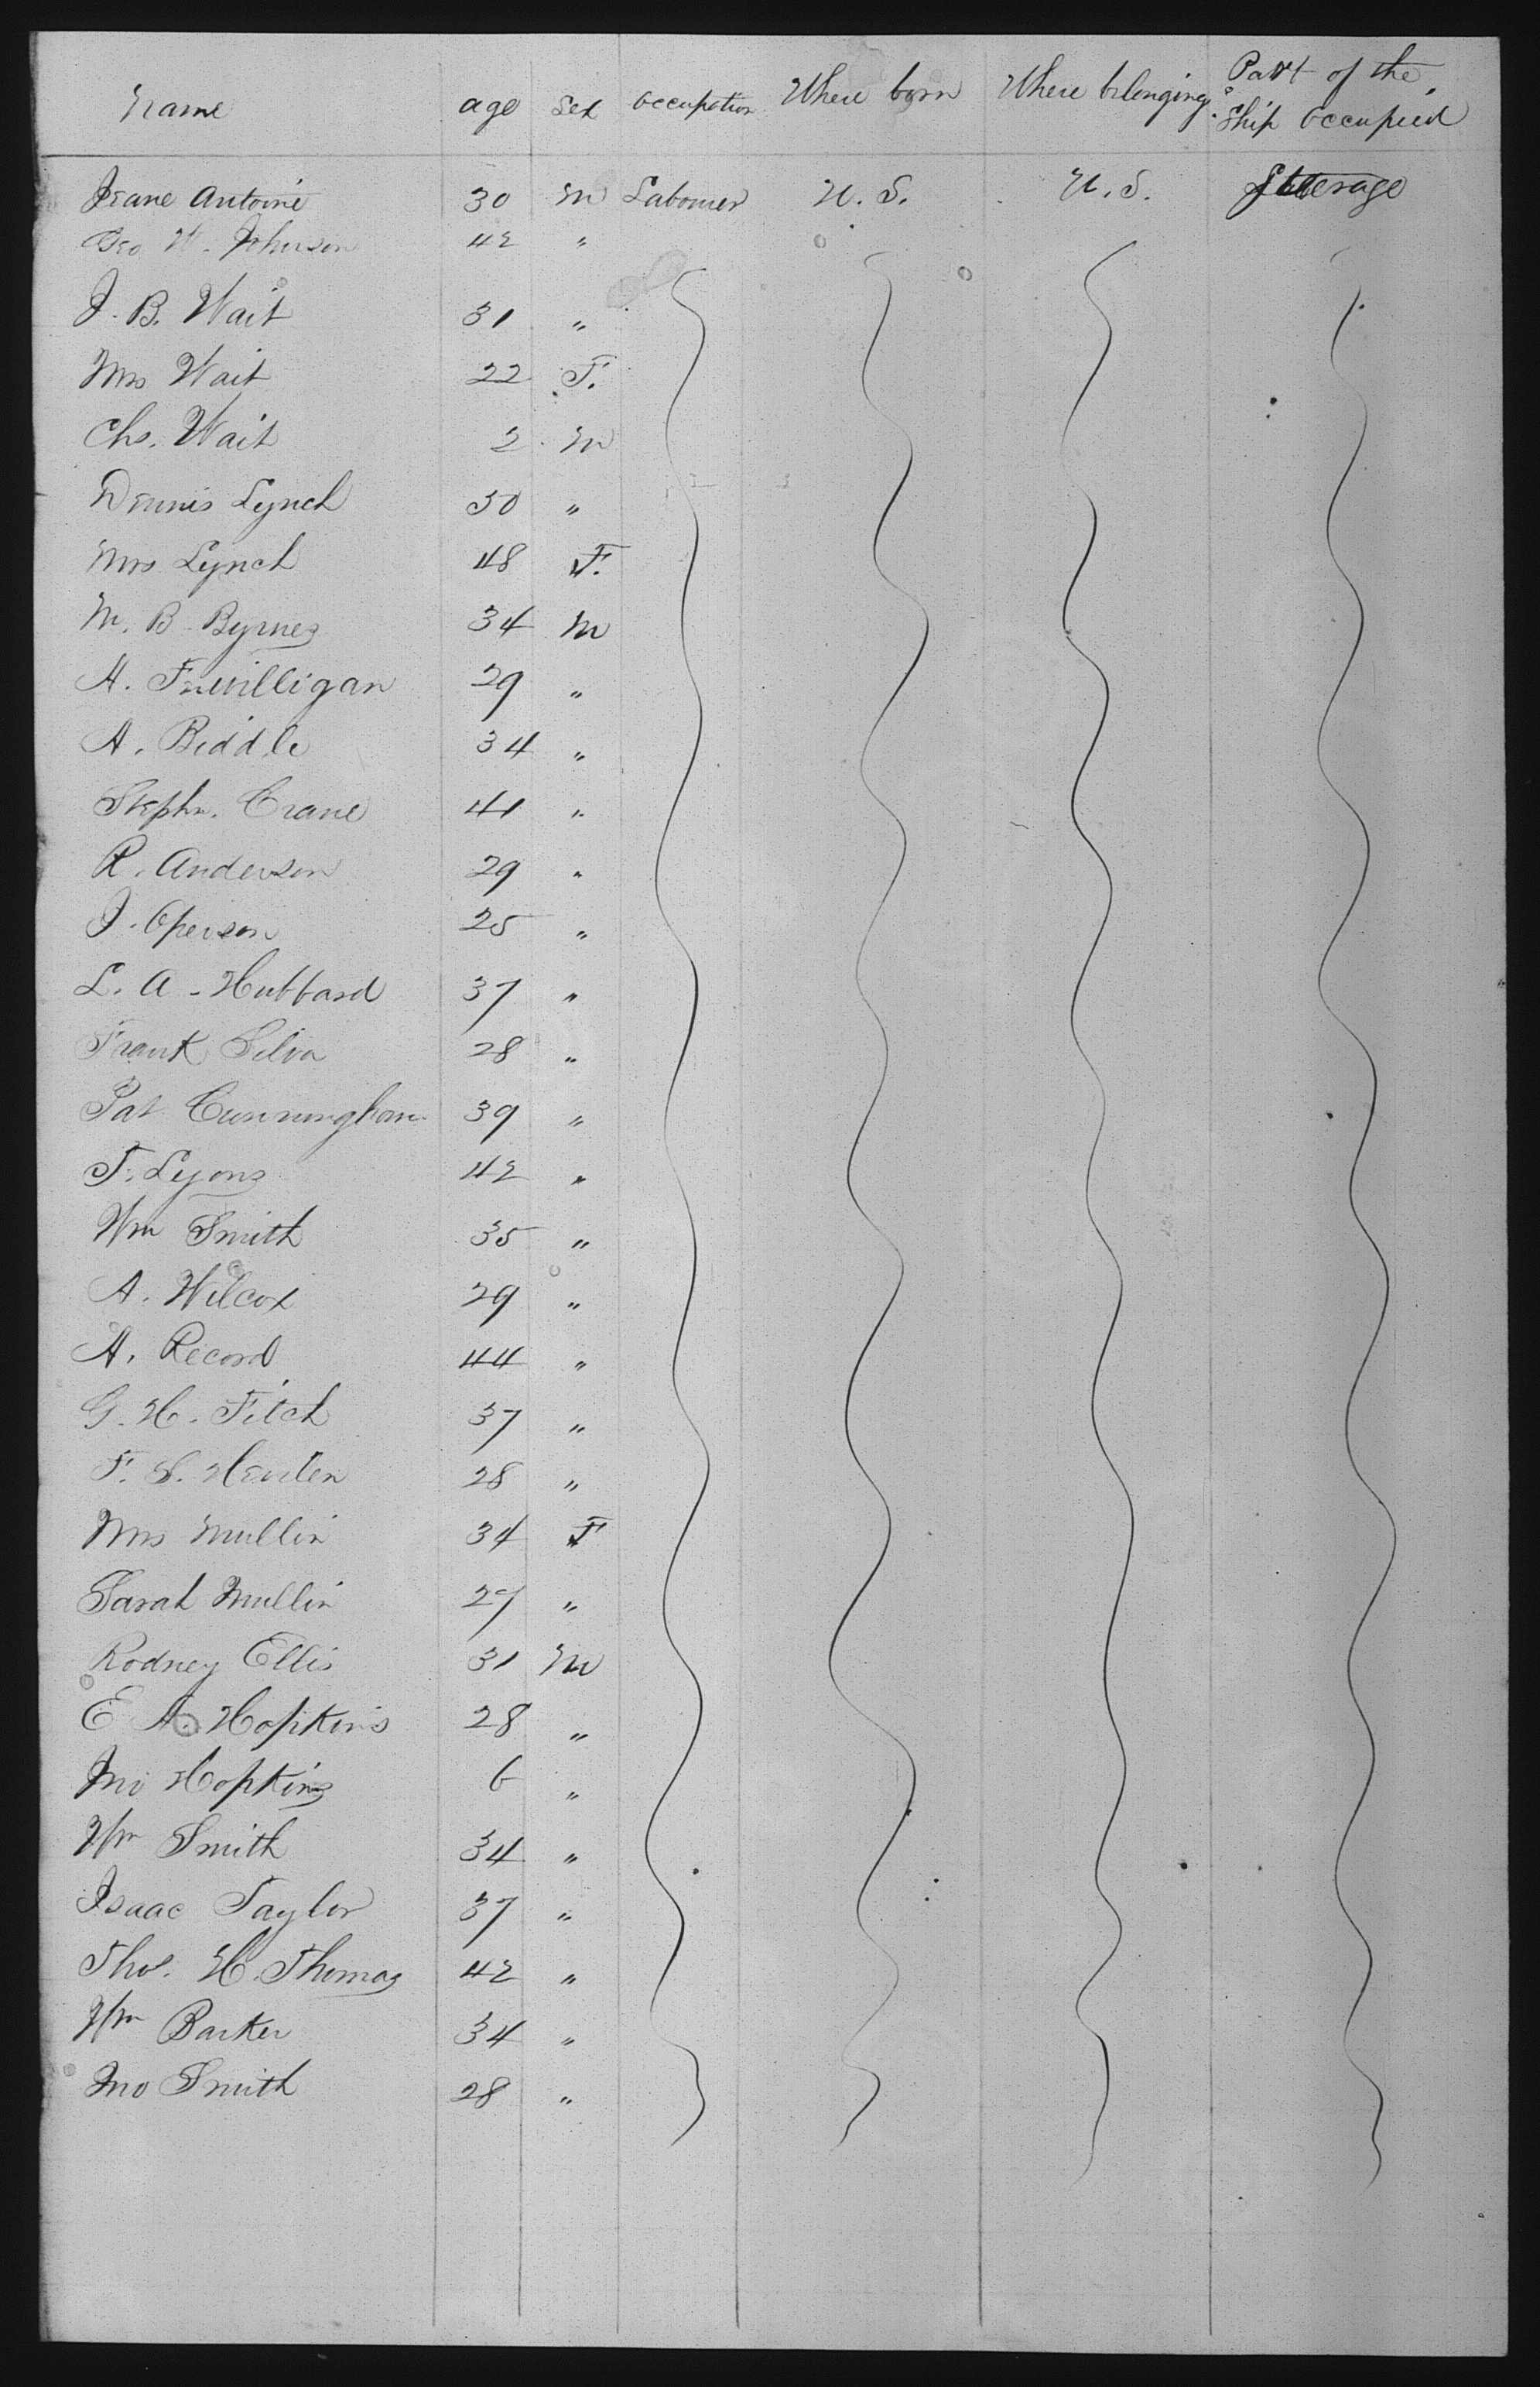 Name age Sex Occupation Where born Where belonging. Part of the Ship Occupied
Jeane Antoine 30 M Labourer U. S. U. S. Steerage
Geo W. Johnson 42 "
J. B. Wait 31 "
Mrs Wait 22 F.
Chs. Wait 2 M
Dennis Lynch 30 "
Mrs Lynch 48 F.
M. B. Byrnes 34 M
A. 29 "
A. Biddle 34 "
Stephn. Crane 41 "
R. Anderson 29 "
J. 25 "
L. A. Hubbard 37 "
Frank Silva 28 "
Pat Cunningham 39 "
T. Lyons 42 "
Wm Smith 35 "
A. Wilcox 29 "
A. Record 44 "
G. H. Fitch 37 "
F. S. 28 "
Mrs Mullin 34 F
Sarah Mullin 27 "
Rodney Ellis 31 M
E A. Hopkins 28 "
Jno Hopkins 6 "
Wm Smith 34 "
Isaac Taylor 37 "
Thos. H. Thomas 42 "
Wm Barker 34 "
Jno Smith 28 "